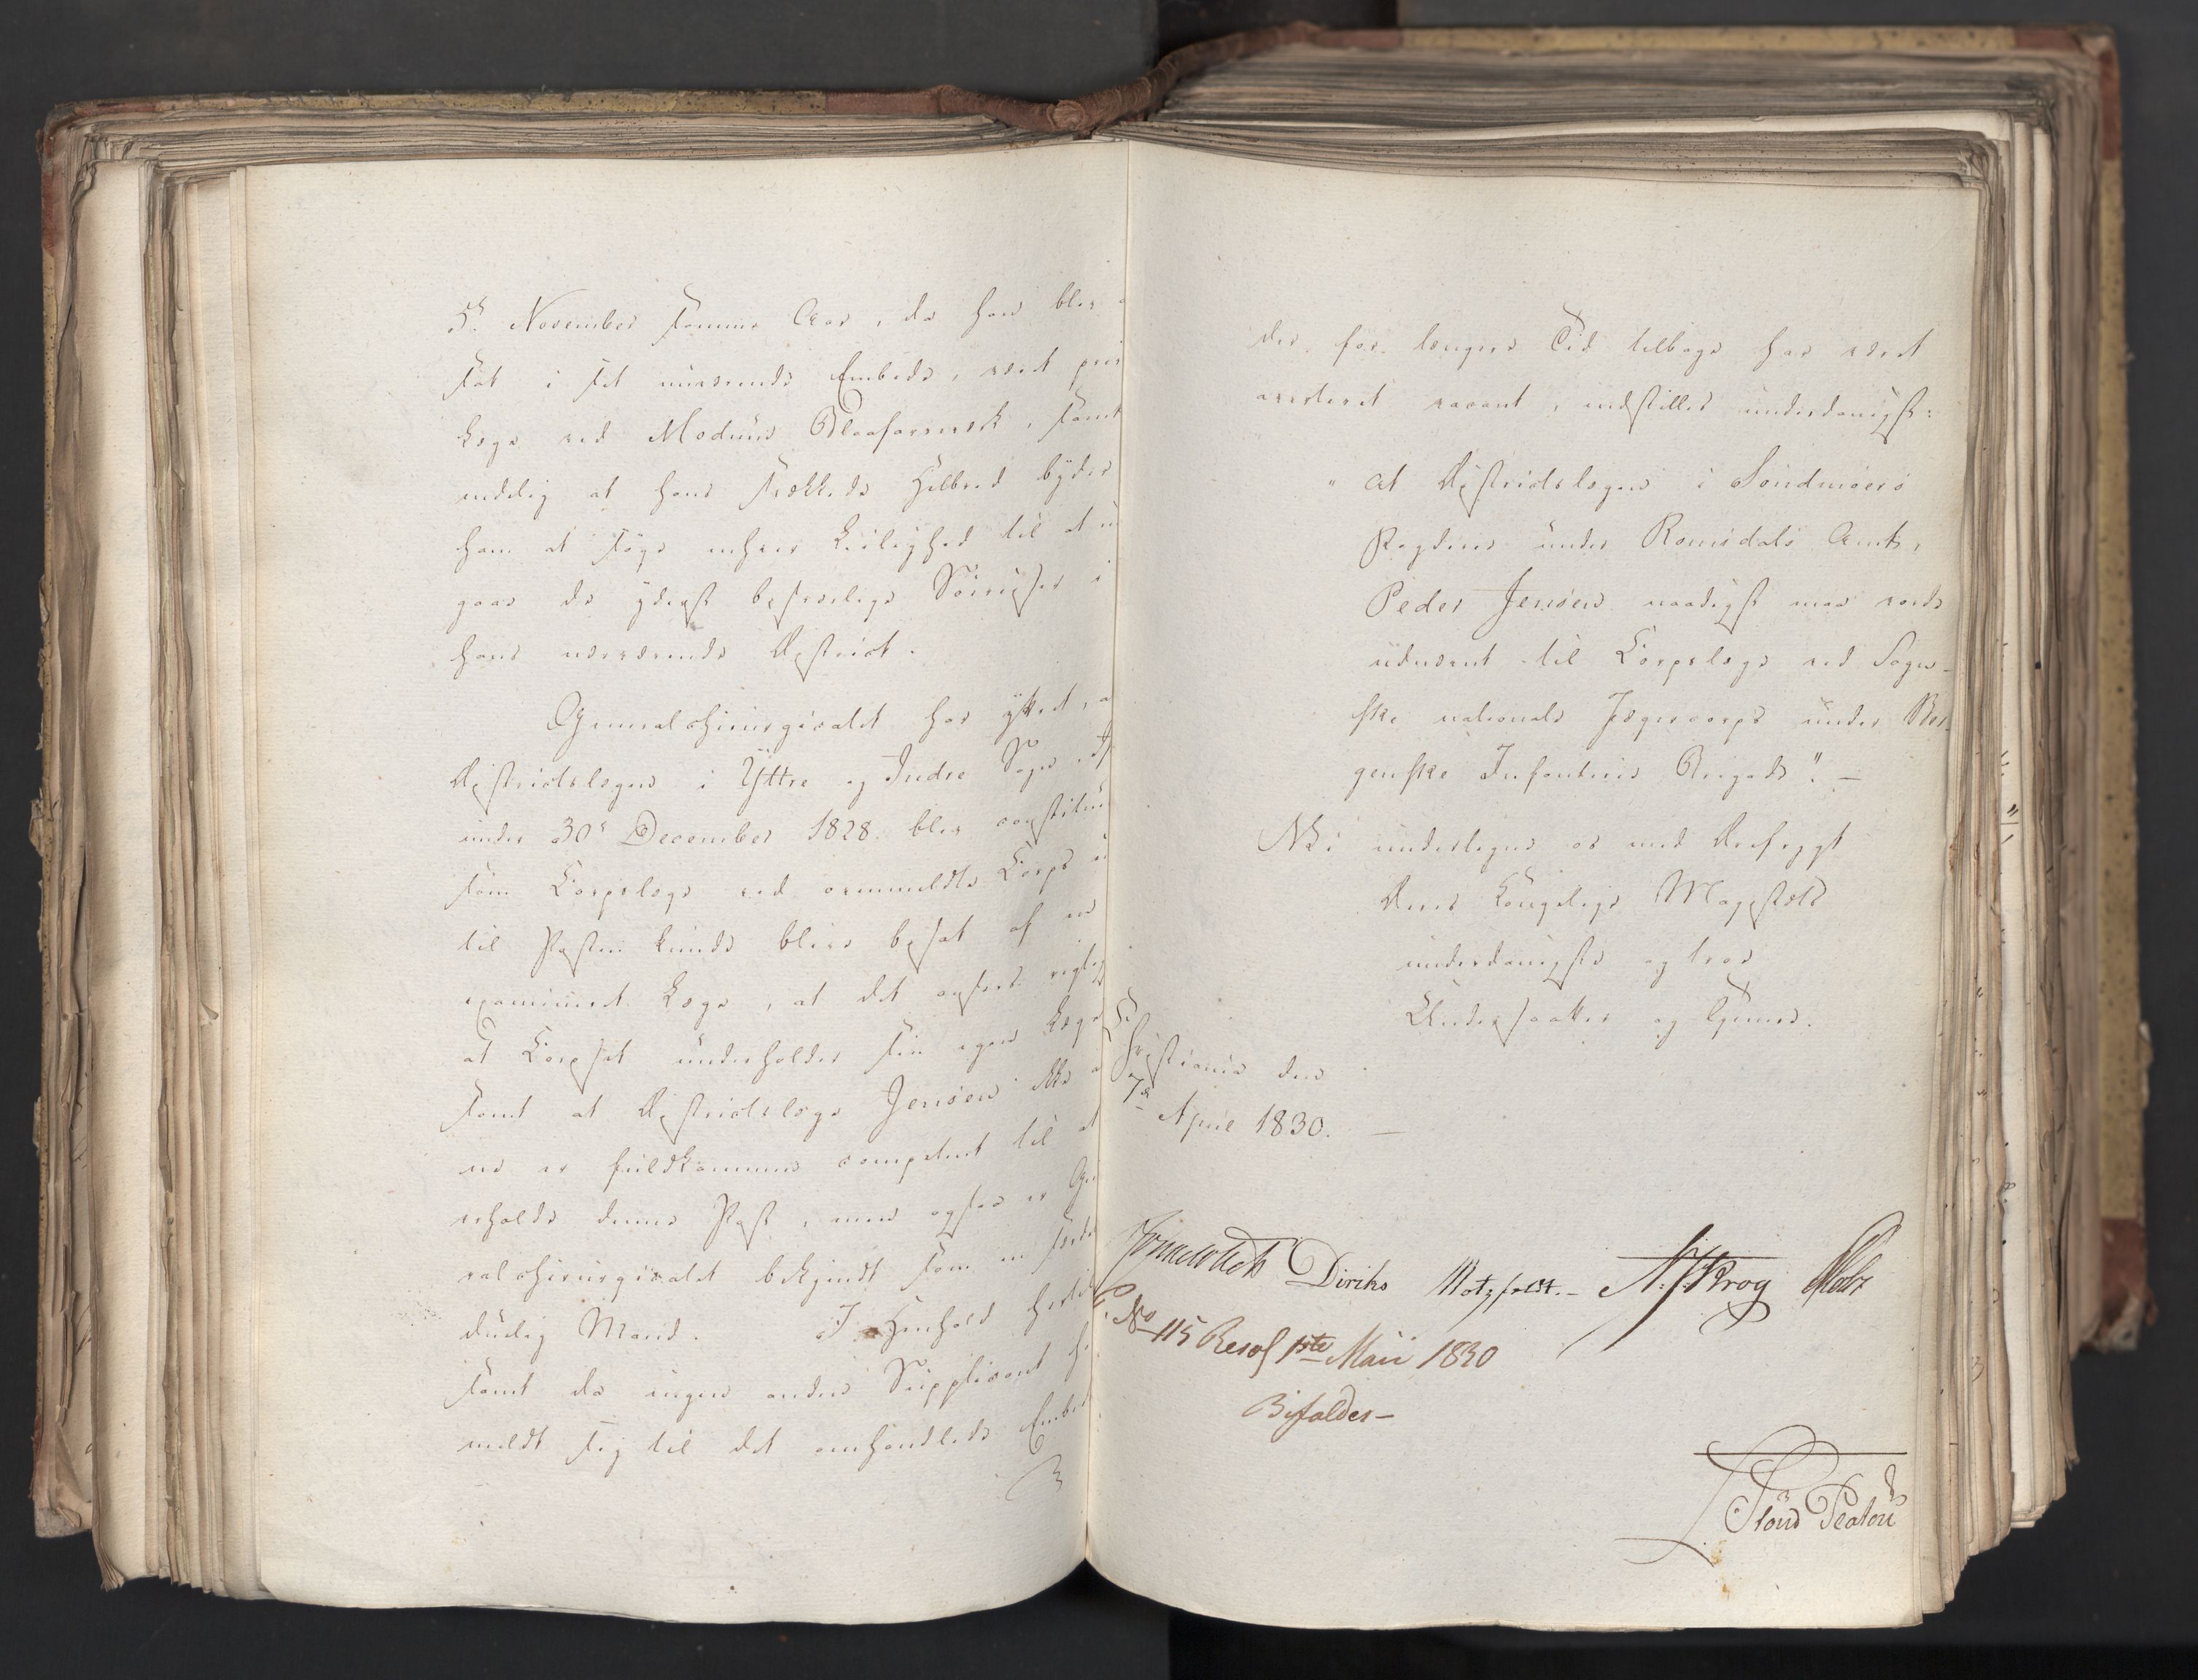 5te November samme Aar, da han blev
sat i sit nuværende Embede, været
Læge ved Modums Blaafarveverk, samt
endelig at hans svækkede Helbred byder
ham at søge enhver Leilighed til at
gaae de yderst besværlige Søereiser i
hans nærværende District.
Generalchirurgicatet har yttret, a
Districtslægen i Yttre og Indre Sogn
under 30te December 1828 blev constitue
som Corpslæge ved ovenmeldte Corps
til Posten kunde blive besat af en
examineret Læge, at det ansees vigtig
at Corpset underholder sin egen Læge
samt at Districtslæge Jensen ikke a
ne er fuldkommen competent til at
erholde denne Post, men ogsaa er Ge
ralchirurgicatet bekjendt som en
duelig Mand. I Henhold
samt da ingen anden Supplicant
meldt sig til det omhandlede Embed
der for længere Tid tilbage har været
averteret vacant, indstilles underdanigst:
" at Districtslægen i Söndmöers
Fogderie under Romsdals Amt,
Peder Jensen naadigst maa vorde
udnævnt til Corpslæge ved Sogn-
ske nationale Jægercorps under Ber-
genske Infanterie Brigade". —
Vi undertegne os med Ærefrygt
Deres Kongelige Majestæts
underdanigste og troe
Undersaatter og Tjenere.
Christiania den
7de April 1830. —
Diriks Motzfeldt. –
No 115 Resol 1ste Maii 1830
Bifaldes –